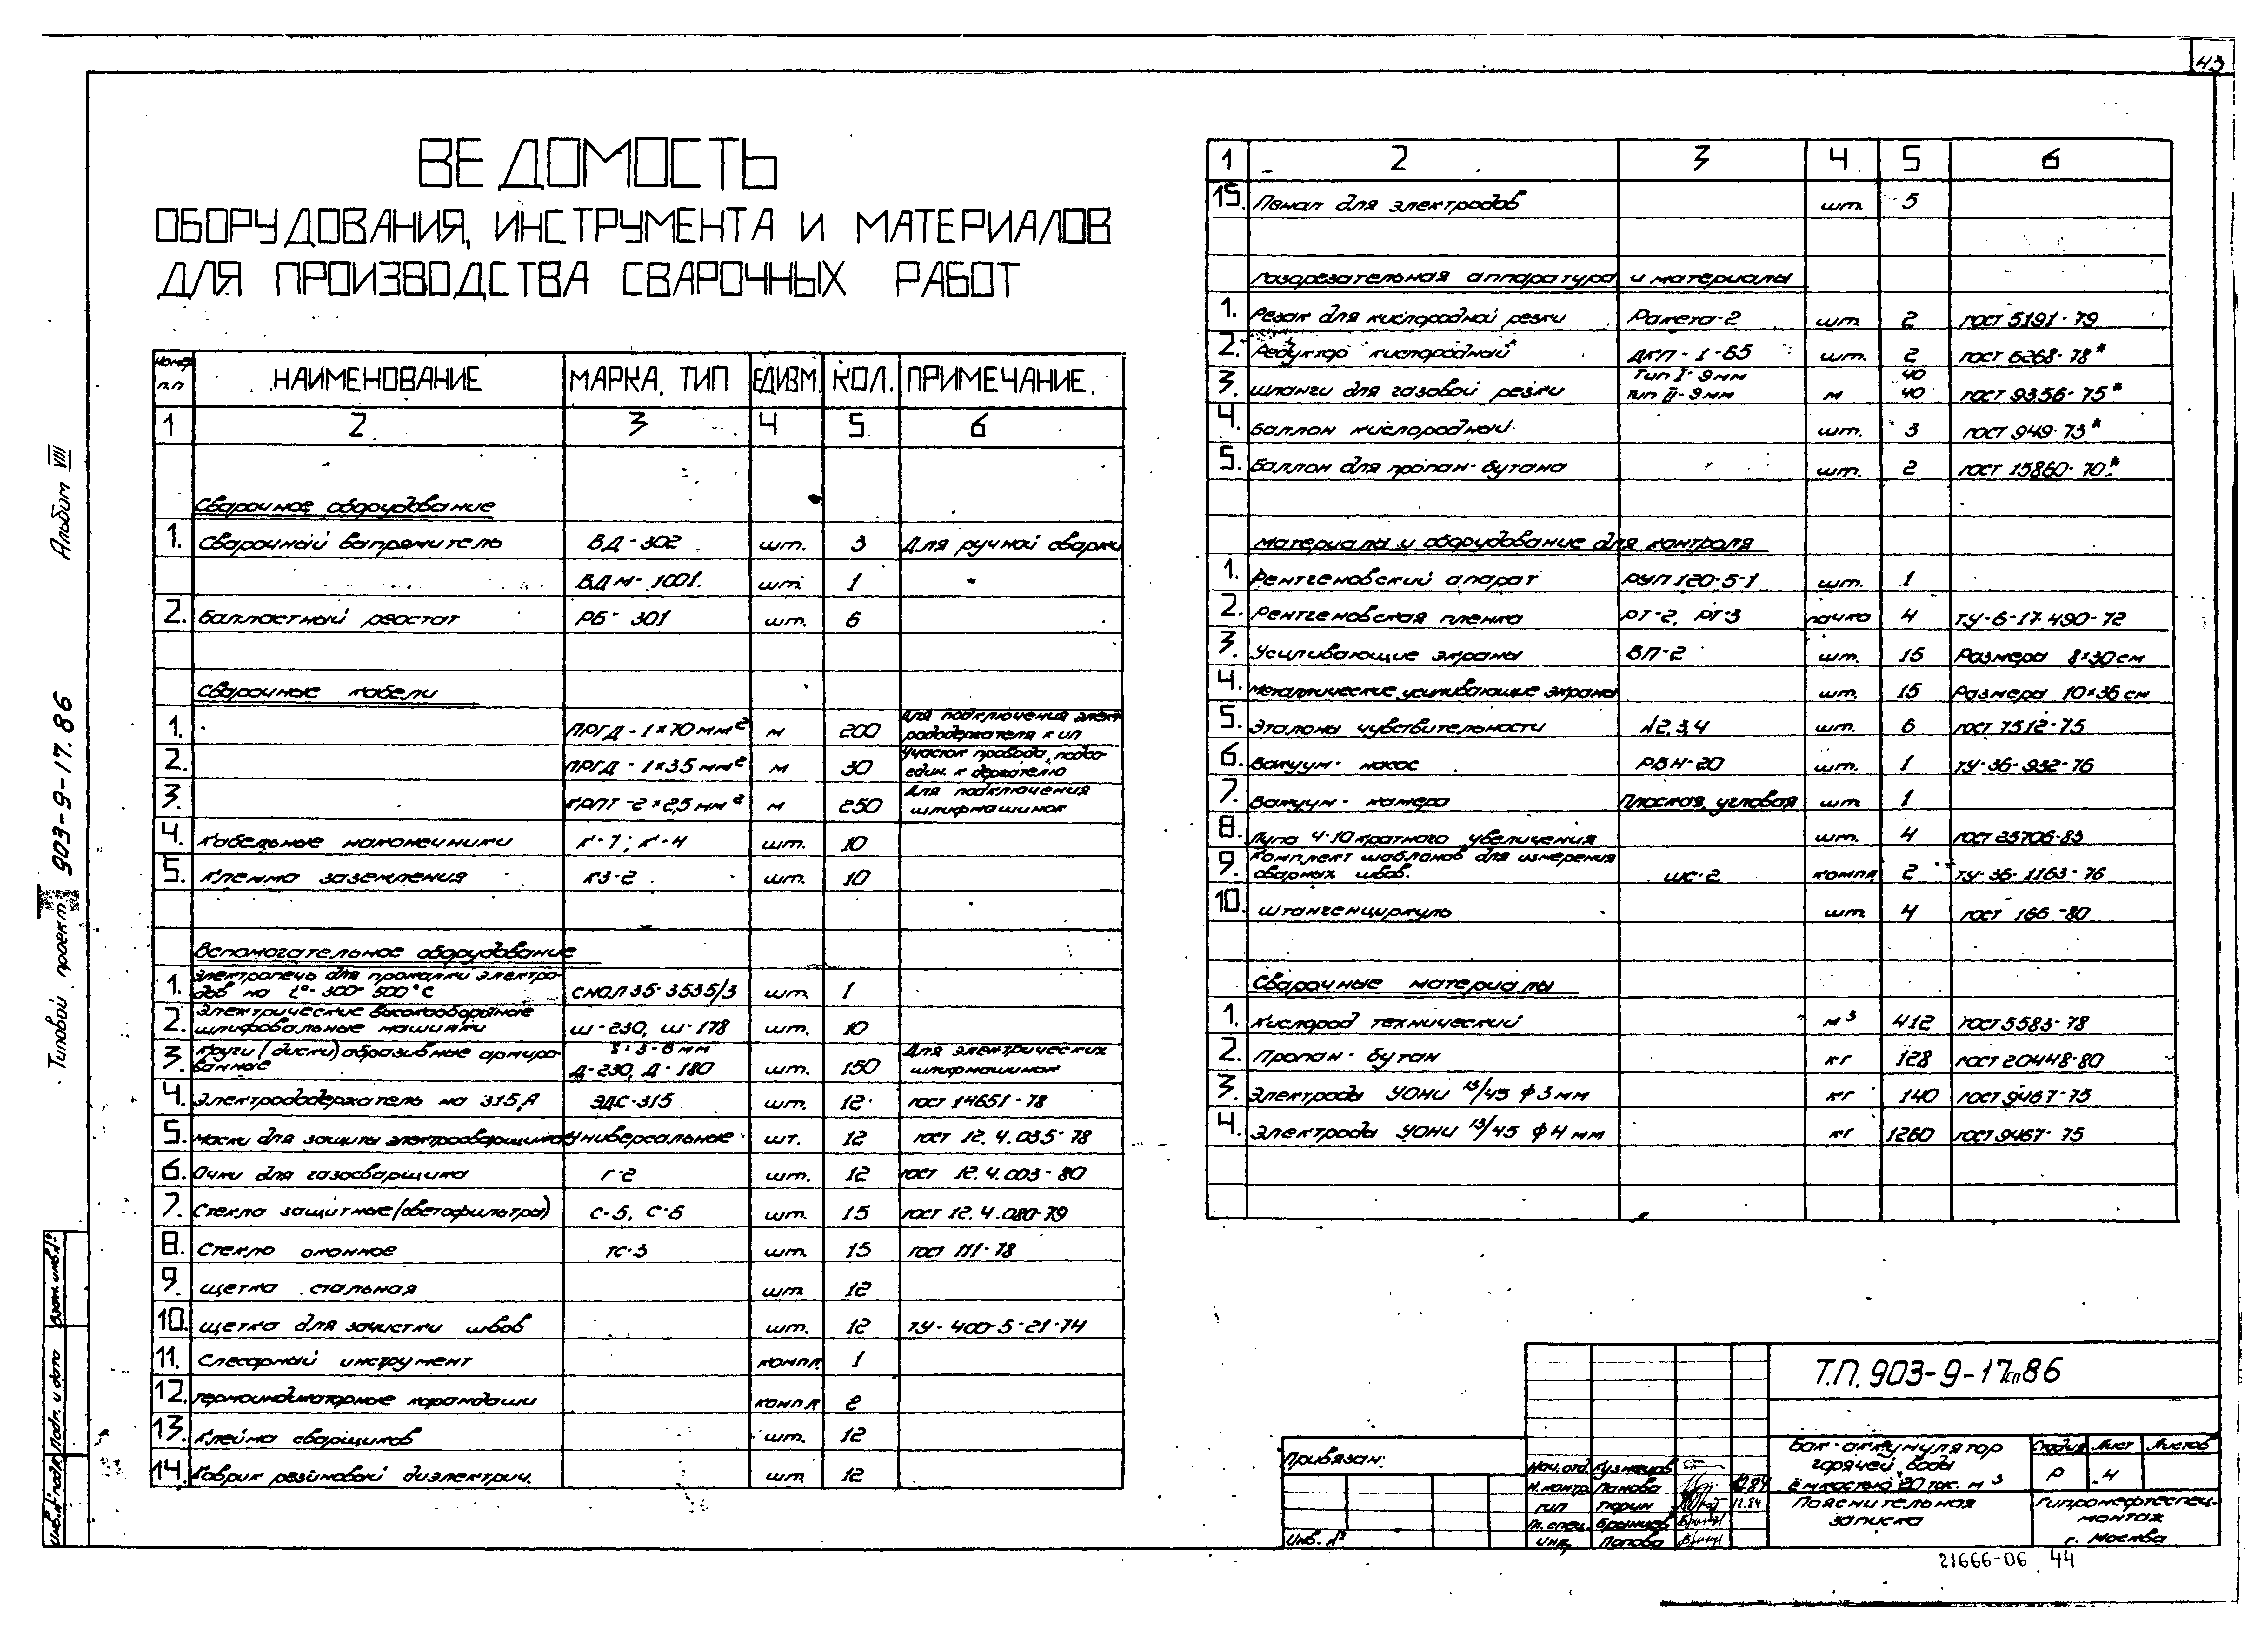 43
ВЕДОМОСТЬ
ОБОРУДОВАНИЯ, ИНСТРУМЕНТА И МАТЕРИАЛОВ
ДЛЯ ПРОИЗВОДСТВА СВАРОЧНЫХ РАБОТ
номер п.п НАИМЕНОВАНИЕ МАРКА, ТИП ЕД.ИЗМ. КОЛ. ПРИМЕЧАНИЕ.
1 2 3 4 5 6
Сварочное оборудование
1. Сварочный выпрямитель ВД-302 шт. 3 Для ручной сварки
ВДМ-1001. шт. 1
2. Балластный реостат РБ-301 шт. 6
Сварочные кабели
1. ПРГД-1×70мм² м 200 Для подключения элект-
рододержателя к ип
2. ПРГД-1×35мм² м 30 Участок провода, подсо-
един. к держателю
3. КРПТ-2×2,5мм² м 250 Для подключения
шлифмашинок
4. Кабельные наконечники К-7; К-4 шт. 10
5. Клемма заземления КЗ-2 шт. 10
Вспомогательное оборудование
1. Электропечь для прокалки электро-
дов на t°-300-500°С СНОЛ 35-3535/3 шт. 1
2. Электрические высокооборотные
шлифовальные машинки Ш-230, Ш-178 шт. 10
3. Круги (диски) образивные армиро-
ванные S=3-6мм
Д-230, Д-180 шт. 150 Для электрических
шлифмашинок
4. Электрододержатель на 315А ЭДС-315 шт. 12 ГОСТ 14651-78
5. Маски для защиты электросварщиков Универсальные шт. 12 ГОСТ 12.4.035-78
6. Очки для газосварщика Г-2 шт. 12 ГОСТ 12.4.003-80
7. Стекла защитные (светофильтры) С-5, С-6 шт. 15 ГОСТ 12.4.080-79
8. Стекло оконное ТС-3 шт. 15 ГОСТ 111-78
9. Щетка стальная шт. 12
10. Щетка для зачистки швов шт. 12 ТУ-400-5-21-74
11. Слесарный инструмент компл. 1
12. Термоиндикаторные карандаши компл 2
13. Клейма сварщиков шт. 12
14. Коврик резиновый диэлектрич. шт. 12
1 2 3 4 5 6
15. Пенал для электродов шт. 5
Газорезательная аппаратура и материалы
1. Резак для кислородной резки Ракета-2 шт. 2 ГОСТ 5191-79
2. Редуктор кислородный ДКП-1-65 шт. 2 ГОСТ 6268-78*
3. Шланги для газовой резки Тип I-9мм 40
Тип II-9мм м 40 ГОСТ 9356-75*
4. Баллон кислородный шт. 3 ГОСТ 949-73*
5. Баллон для пропан-бутана шт. 2 ГОСТ 15860-70*
Материалы и оборудование для контроля
1. Рентгеновский апарат РУП 120-5-1 шт. 1
2. Рентгеновская пленка РТ-2, РТ-3 пачка 4 ТУ-6-17-490-72
3. Усиливающие экраны ВП-2 шт. 15 Размеры 8×30см
4. Металлические усиливающие экраны шт. 15 Размеры 10×36см
5. Эталоны чувствительности №2,3,4 шт. 6 ГОСТ 7512-75
6. Вакуум-насос РВН-20 шт. 1 ТУ-36-932-76
7. Вакуум-камера Плоская, угловая шт 1
8. Лупа 4-10 кратного увеличения шт. 4
9. Комплект шаблонов для измерения
сварных швов. ШС-2 компл 2 ТУ-36-1163-76
10. Штангенциркуль шт 4 ГОСТ 166-80
Сварочные материалы
1. Кислород технический м³ 412 ГОСТ 5583-78
2. Пропан-бутан кг 128 ГОСТ 20448-80
3. Электроды УОНИ 13/45 ф3мм кг 140 ГОСТ 9467-75
4. Электроды УОНИ 13/45 ф4мм кг 1260 ГОСТ 9467-75
Типовой проект 903-9-17.86 Альбом VIII
Взам. инв.№
Подп. и дата
Инв.№ подл.
Привязан:
Инв. №
Нач. отд. Кузнецов
Н. контр. Панова 12.84
ГИП Тюрин 12.84
Гл. спец.
Инж. Попова
Т.П. 903-9-17сп86
Бак-аккумулятор
горячей воды
ёмкостью 20 тыс. м³
Стадия Лист Листов
Р 4
Пояснительная
записка
Гипронефтеспец-
монтаж
г. Москва
21666-06 44